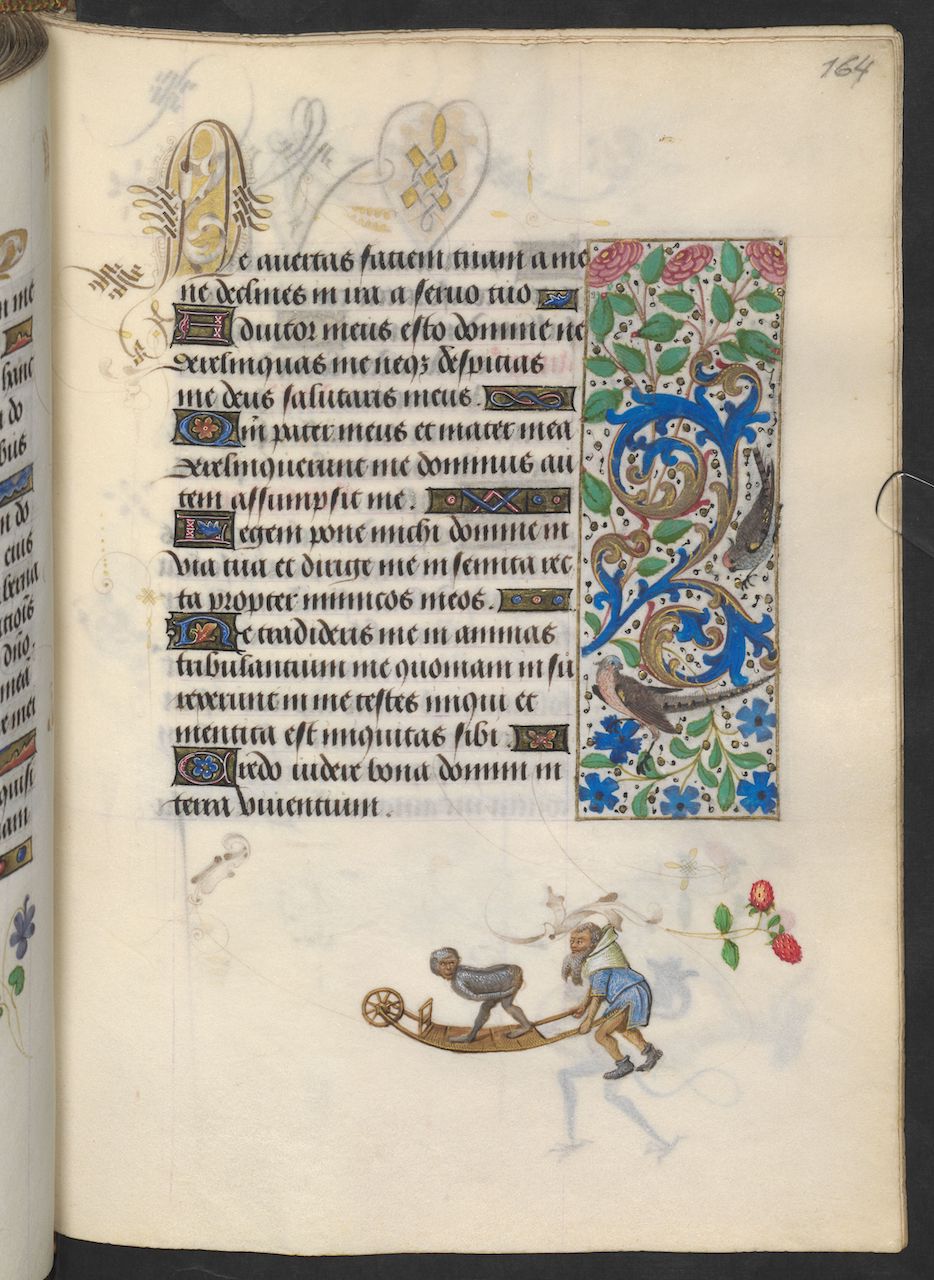 164
Ne auertas faciem tuam a me
ne declines in ira a seruo tuo
Adiutor meus esto domine ne
derelinquas me neqȝ despicias
me deus salutaris meus.
Qm̄ pater meus et mater mea
dereliquerunt me dominus au
tem assumpsit me.
Legem pone michi domine in
via tua et dirige me in semita rec
ta propter inimicos meos.
Ne tradideris me in animas
tribulantium me quoniam in su
rexerunt in me testes iniqui et
mentita est iniquitas sibi.
Credo uidere bona domini in
terra viuentium.